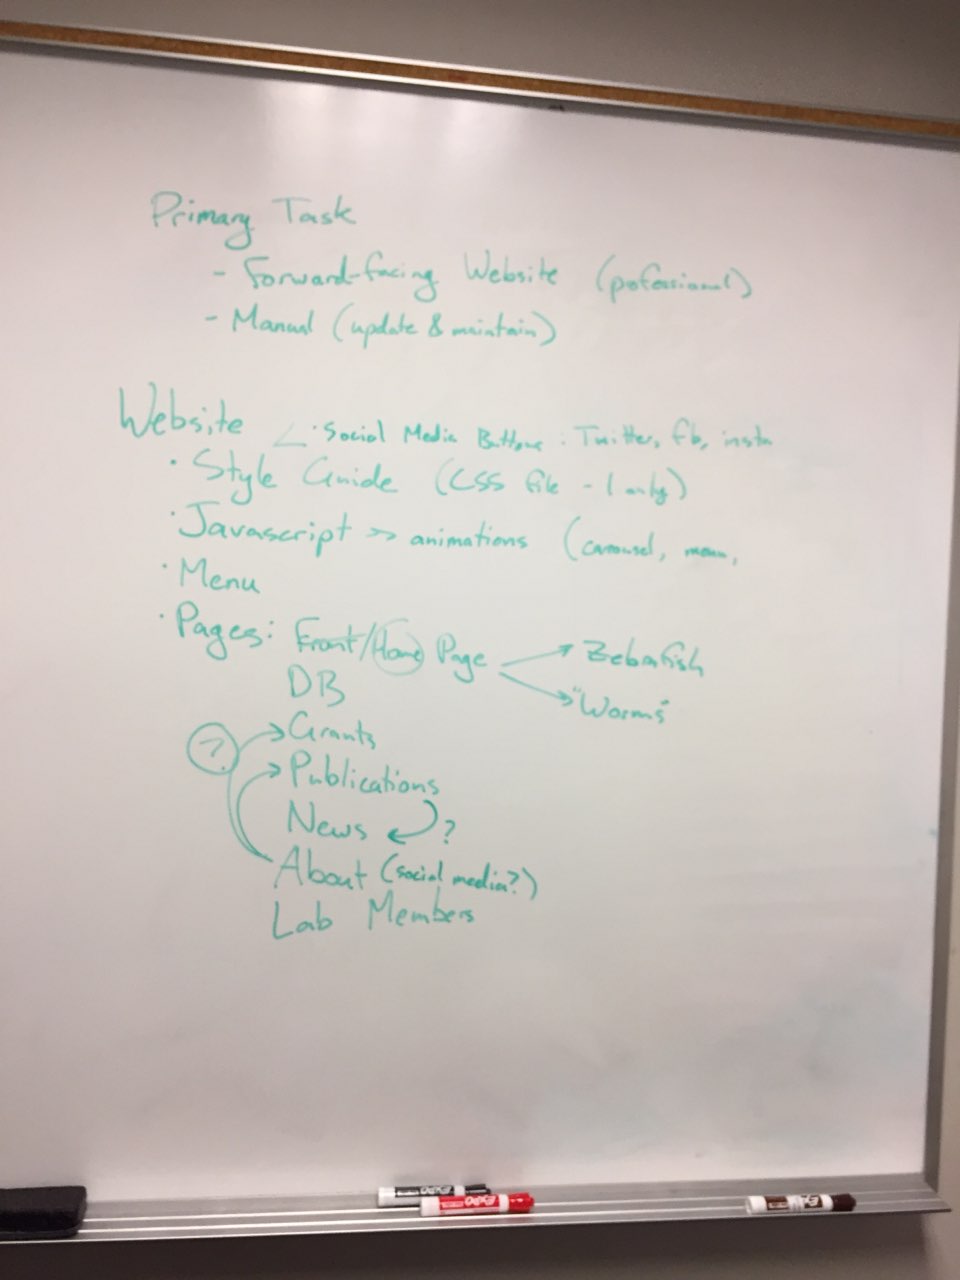 Primary Task
- Forward-facing Website (pofessional)
- Manual (update & maintain)
Website
· Social Media Buttons : Twitter, fb, insta
· Style Guide (CSS file - 1 only)
· Javascript >> animations (carousel, menu,
· Menu
· Pages: Front/Home Page
Zebrafish
"Worms"
DB
? Grants
Publications
News ?
About (social media?)
Lab Members
EXPO
EXPO